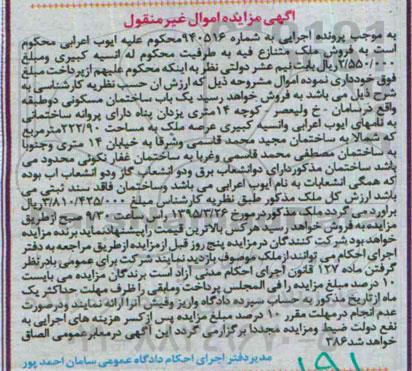 آگهی مزایده اموال غیر منقول
به موجب پرونده اجرایی به شماره ۹۴۰۵۱۶محکوم علیه ایوب اعرابی محکوم
است به فروش ملک متنازع فیه به ظرفیت محکوم له انسیه کبیری ومبلغ
۲/۵۵۰/۰۰۰ریال بابت نیم عشر دولتی نظر به اینکه محکوم علیهم ازپرداخت مبلغ
فوق خودداری نموده اموال مشروحه ذیل که ارزش ان حسب نظریه کارشناسی به
شرح ذیل می باشد به فروش خواهد رسید یک باب ساختمان مسکونی دوطبقه
واقع درسامان - خ ولیعصر کوچه ۱۴متری یزدان پناه دارای پروانه ساختمانی
به نامهای ایوب اعرابی وانسیه کبیری عرصه ملک به مساحت ۲۲۲/۹۰مترمربع
که شمالا به ساختمان مجید محمد قاسمی وشرقا به خیابان ۱۴ متری وجنوبا
به ساختمان مصطفی محمد قاسمی وغربا به ساختمان غفار نکوئی محدود می
باشد ساختمان مذکوردارای دوانشعاب برق ودو انشعاب گاز ودو انشعاب اب بوده
که همگی انشعابات به نام ایوب اعرابی می باشد وساختمان فاقد سند ثبتی می
باشد ارزش کل ملک مذکور طبق نظریه کارشناسی مبلغ ۳/۸۱۰/۴۲۵/۰۰۰ریال
براوردمی گردد ملک مذکوردرمورخ ۱۳۹۵/۳/۲۶ راس ساعت ۹/۳۰ صبح ازطریق
مزایده به فروش خواهد رسید هرکس بالاترین قیمت راپیشنهادنمایدبرنده مزایده
خواهدبود شرکت کنندگان درمزایده پنج روز قبل ازمزایده ازطریق مراجعه به دفتر
اجرای احکام می توانندازملک موصوف بازدید نمایند شرکت برای عمومی بادرنظر
گرفتن ماده ۱۲۷ قانون اجرای احکام مدنی آزاد است برندگان مزایده می بایست
۱۰ درصد مبلغ مزایده را فی المجلس پرداخت ومابقی را ظرف مهلت حداکثر یک
ماه ازتاریخ مذکور به حساب سپرده دادگاه واریز وفیش آنرا ارائه نمایند ودرصورت
عدم انجام درمهلت مقرر ۱۰ درصد مبلغ مزایده پس ازکسر هزینه های اجرایی به
نفع دولت ضبط ومزایده مجددا برگزارمی گردد این آگهی درمعابرعمومی الصاق
خواهد شد۳۸۶
مدیردفتر اجرای احکام دادگاه عمومی سامان احمد پور